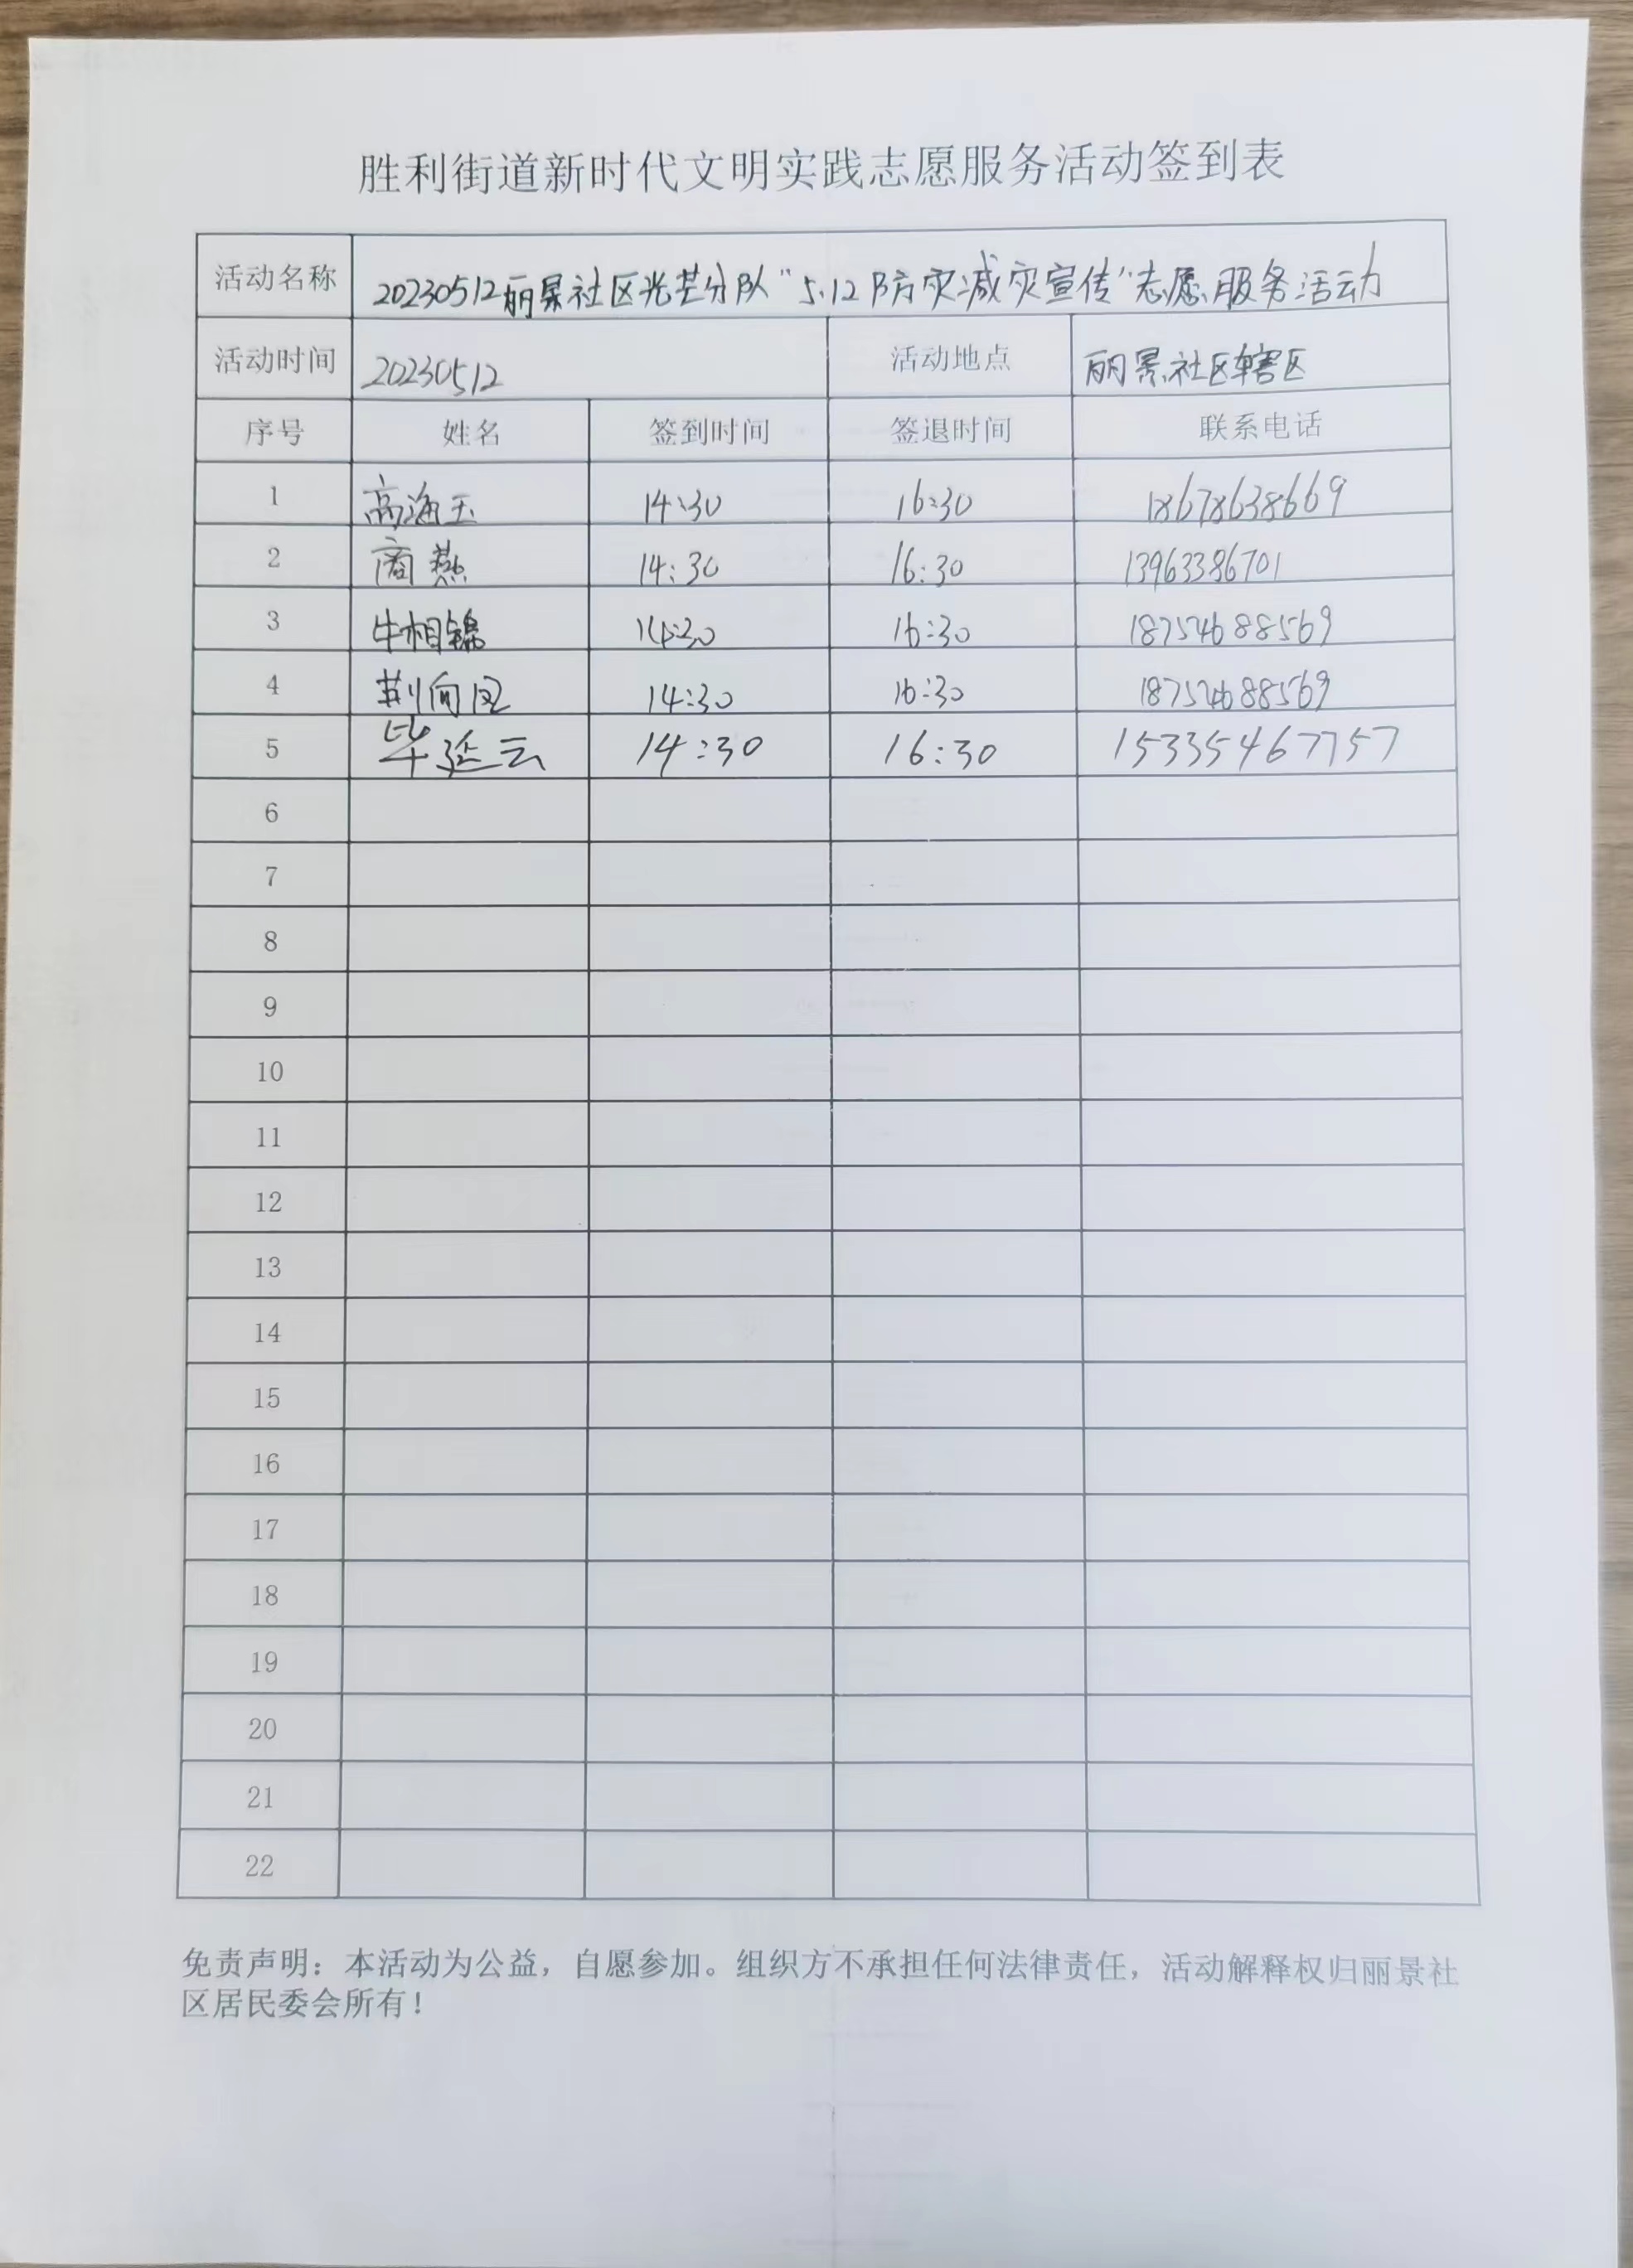 胜利街道新时代文明实践志愿服务活动签到表
活动名称 20230512丽景社区光芒分队“5.12防灾减灾宣传”志愿服务活动
活动时间 20230512 活动地点 丽景社区辖区
序号 姓名 签到时间 签退时间 联系电话
1 高海玉 14:30 16:30 18678638669
2 商燕 14:30 16:30 13963386701
3 牛相锦 14:30 16:30 18754688569
4 荆向风 14:30 16:30 18754688569
5 毕延云 14:30 16:30 15335467757
6
7
8
9
10
11
12
13
14
15
16
17
18
19
20
21
22
免责声明：本活动为公益，自愿参加。组织方不承担任何法律责任，活动解释权归丽景社
区居民委会所有！